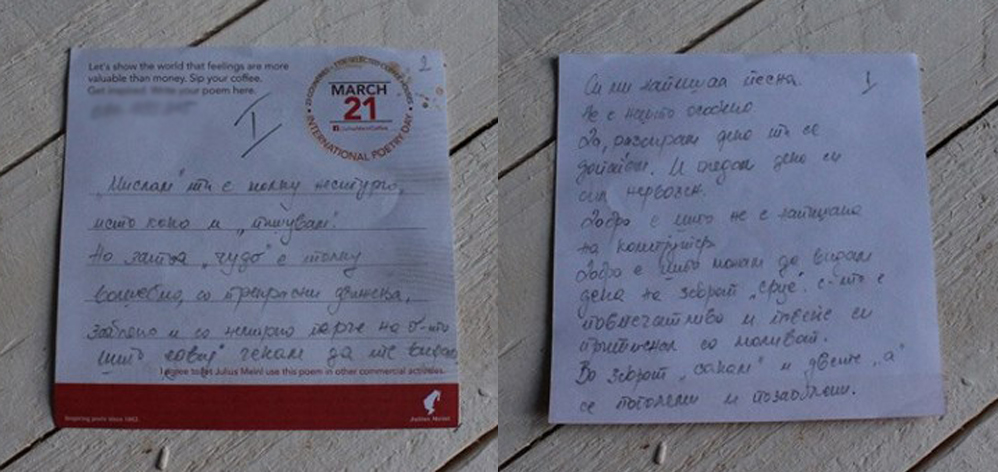 Let's show the world that feelings are more
valuable than money. Sip your coffee.
Get inspired. Write your poem here.
2
I
23 COUNTRIES • 1106 SELECTED COFFEE HOUSES
MARCH
21
@JuliusMeinlCoffee
INTERNATIONAL POETRY DAY
„Мислам" ти е толку несигурно,
исто како и „тшувам".
Но затоа „чудо" е толку
волшебно, со прекрасни движења,
заоблено и со немирно парче на о-то
што
чекам да те видам
I agree to let Julius Meinl use this poem in other commercial activities.
Inspiring poets since 1862.
Julius Meinl
I
Си ми напишал песна.
Не е нешто особено.
Да, разбирам дека ти се
допаѓам. И гледам дека си
бил нервозен.
Добро е што не е напишана
на компјутер.
Добро е што можам да видам
дека на зборот „срце" с-то е
повпечатливо и повеќе си
притискал со моливот.
Во зборот „сакам" и двете „а"
се поголеми и позаоблени.